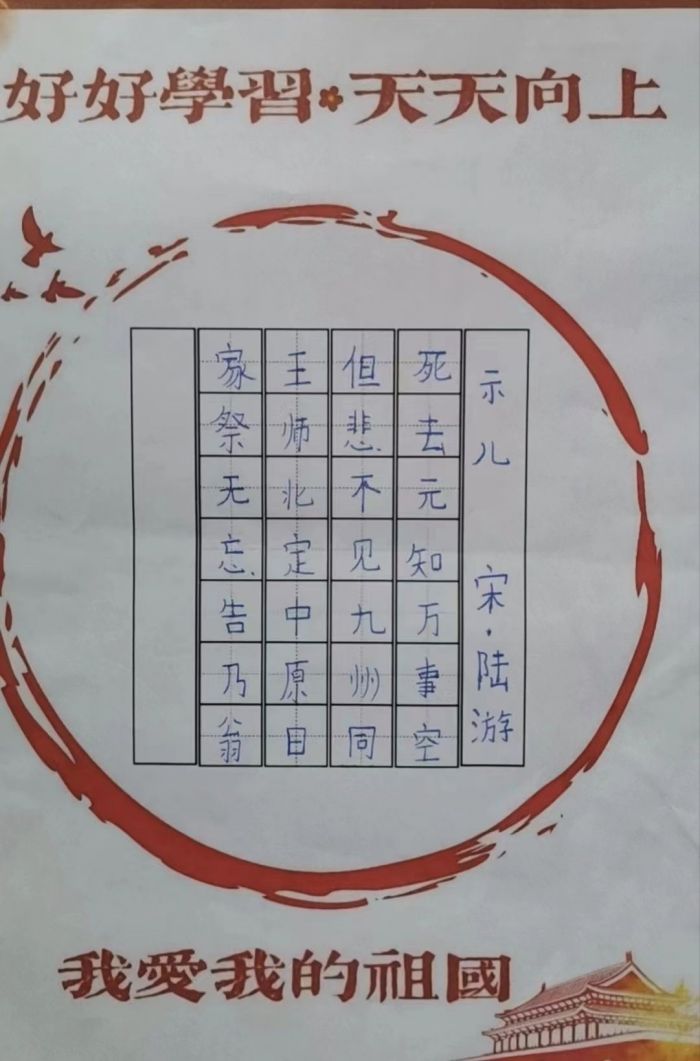 好好學習·天天向上
示儿 宋·陆游
死去元知万事空
但悲不见九州同
王师北定中原目
家祭无忘告乃翁
我愛我的祖國